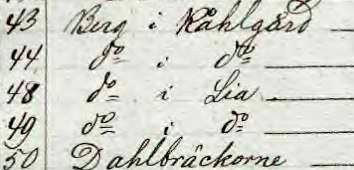 43 Berg i Kåhlgård
44 do i do
48 do i Lia
49 do i do
50 Dahlbräckorne